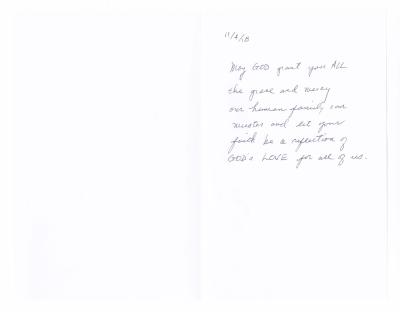 11/4/18
May GOD grant you ALL
the grace and mercy
our human family can
muster and let your
faith be a reflection of
GOD's LOVE for all of us.